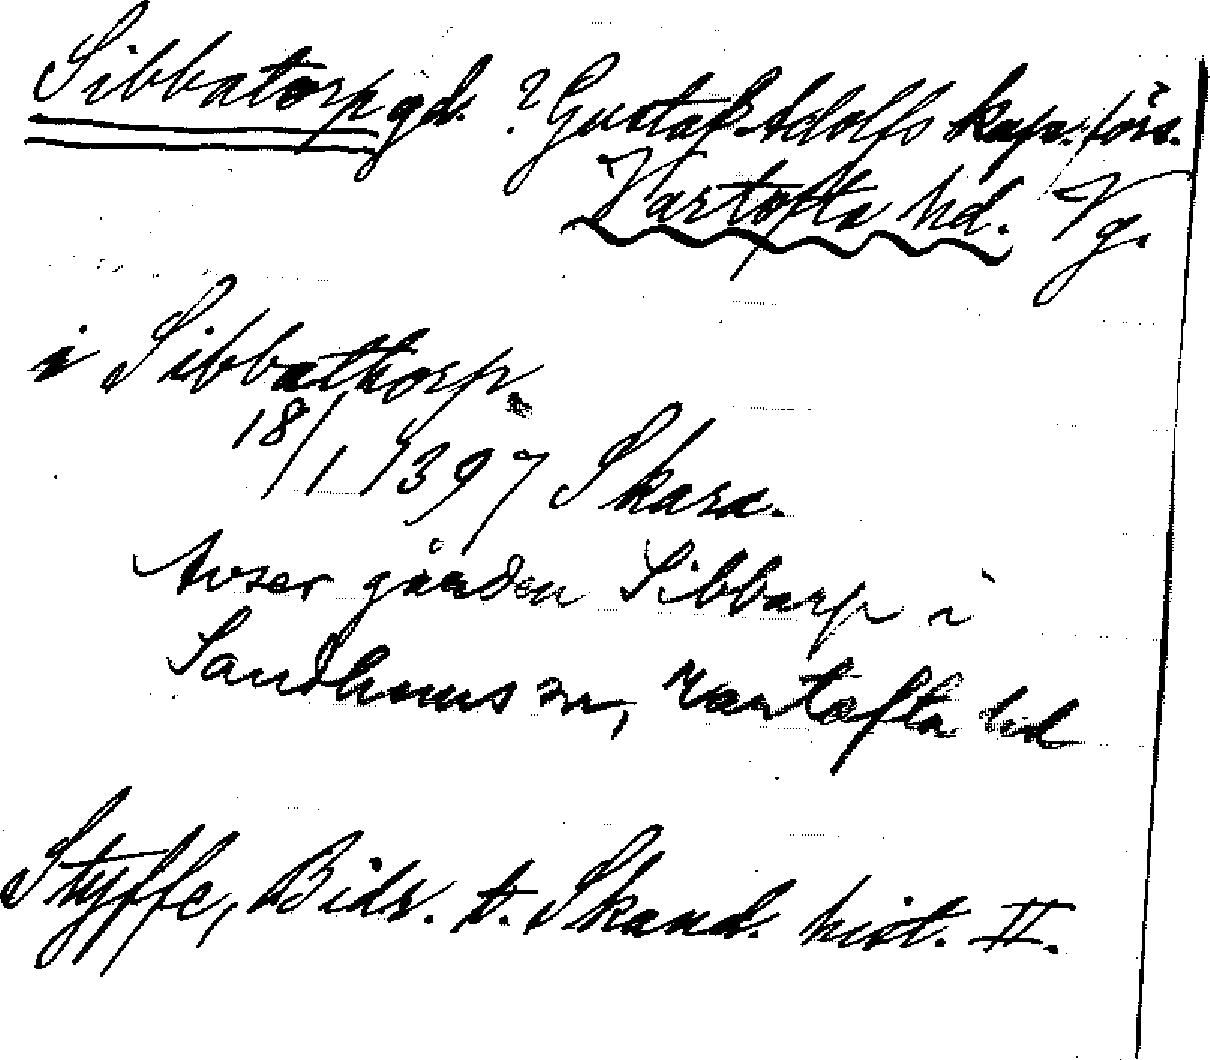 Sibbatorp gd. ? Gustaf Adolfs kap. förs.
Vartofta hd. Vg.
i Sibbathorp.
18/1 1397 Skara.
Avser gården Sibbarp i
Sandhems sn, Vartofta hd
Styffe, Bidr. t. Skand. hist. II.